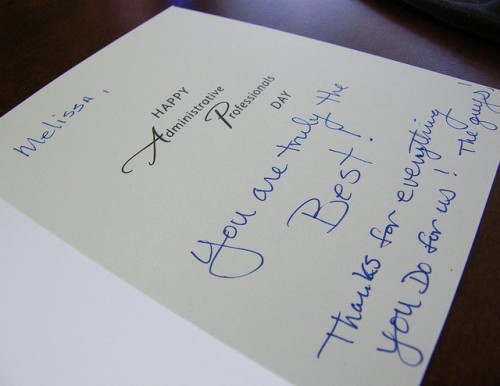 Melissa,
HAPPY
Administrative
Professionals
DAY
You are truly the
Best!
Thanks for everything
you Do for us! The guys!